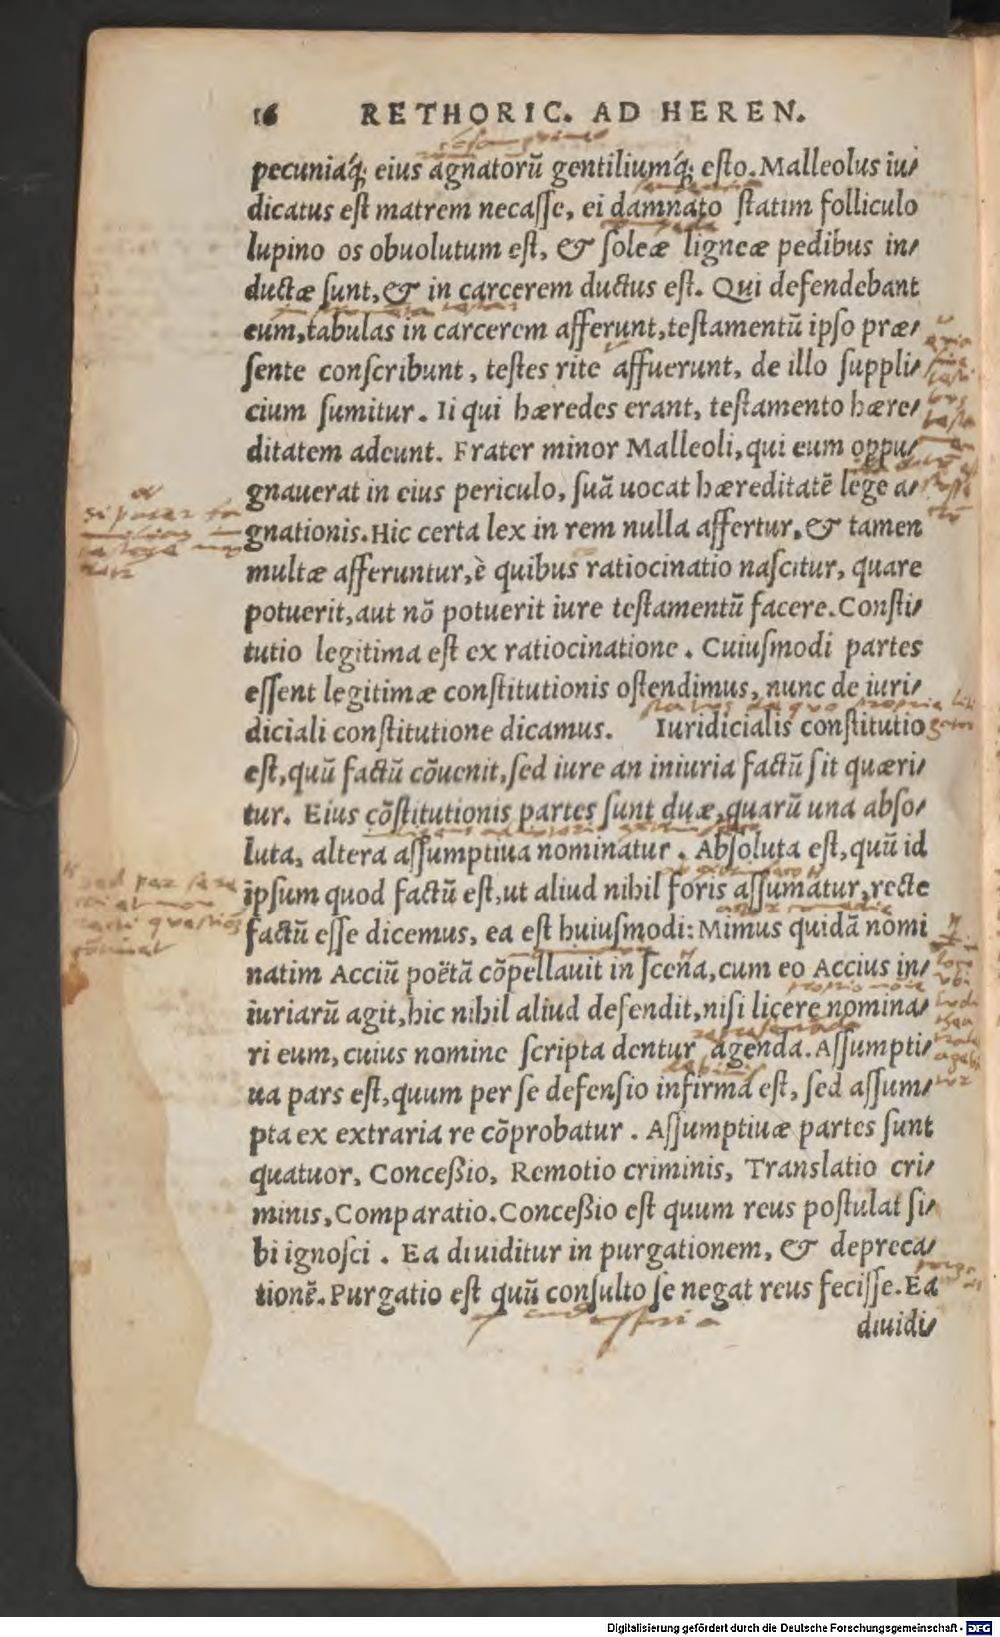 16 RETHORIC. AD HEREN.
pecuniáq; eius agnatorũ gentiliumq́; esto. Malleolus iu/
dicatus est matrem necasse, ei damnato statim folliculo
lupino os obuolutum est, & soleæ ligneæ pedibus in/
ductæ sunt, & in carcerem ductus est. Qui defendebant
eum, tabulas in carcerem afferunt, testamentũ ipso præ/
sente conscribunt, testes rite affuerunt, de illo suppli/
cium sumitur. Ii qui hæredes erant, testamento hære/
ditatem adeunt. Frater minor Malleoli, qui eum oppu/
gnauerat in eius periculo, suã uocat hæreditatẽ lege a/
gnationis. Hic certa lex in rem nulla affertur, & tamen
multæ afferuntur, è quibus ratiocinatio nascitur, quare
potuerit, aut nõ potuerit iure testamentũ facere. Consti/
tutio legitima est ex ratiocinatione. Cuiusmodi partes
essent legitimæ constitutionis ostendimus, nunc de iuri/
diciali constitutione dicamus. Iuridicialis constitutio
est, quũ factũ cõuenit, sed iure an iniuria factũ sit quæri/
tur. Eius cõstitutionis partes sunt duæ, quarũ una abso/
luta, altera assumptiua nominatur. Absoluta est, quũ id
ipsum quod factũ est, ut aliud nihil foris assumatur, recte
factũ esse dicemus, ea est huiusmodi: Mimus quidã nomi
natim Acciũ poëtã cõpellauit in scena, cum eo Accius in/
iuriarũ agit, hic nihil aliud defendit, nisi licere nomina/
ri eum, cuius nomine scripta dentur agenda. Assumpti/
ua pars est, quum per se defensio infirma est, sed assum/
pta ex extraria re cõprobatur. Assumptiuæ partes sunt
quatuor, Conceßio, Remotio criminis, Translatio cri/
minis, Comparatio. Conceßio est quum reus postulat si/
bi ignosci. Ea diuiditur in purgationem, & depreca/
tionẽ. Purgatio est quũ consulto se negat reus fecisse. Ea
diuidi/
industria
Digitalisierung gefördert durch die Deutsche Forschungsgemeinschaft - DFG